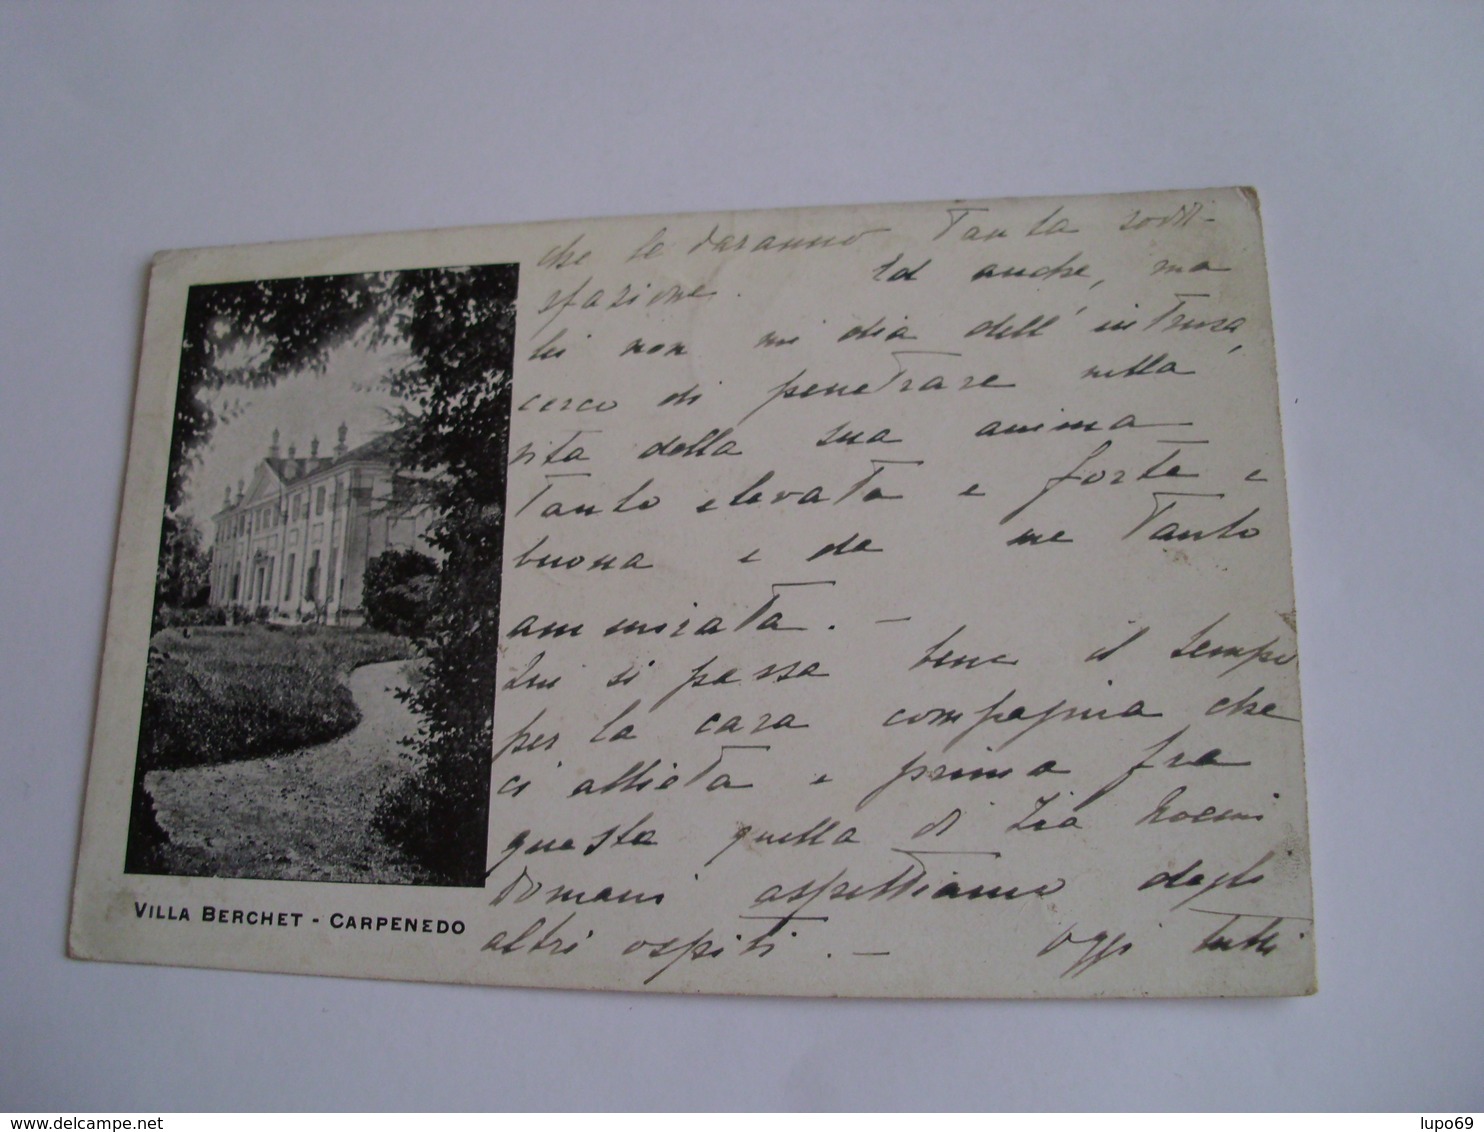 che le daranno Tanta soddi-
sfazione. Ed anche, ma
lei non mi dia dell'intrusa,
cerco di penetrare nella
vita della sua anima
Tanto elevata e forte e
buona e da me Tanto
ammirata. -
Qui si passa bene il tempo
per la cara compagnia che
ci allieta e prima fra
questa quella di Zia Noemi
Domani aspettiamo degli
altri ospiti. - Oggi tutti
VILLA BERCHET - CARPENEDO
www.delcampe.net
lupo69